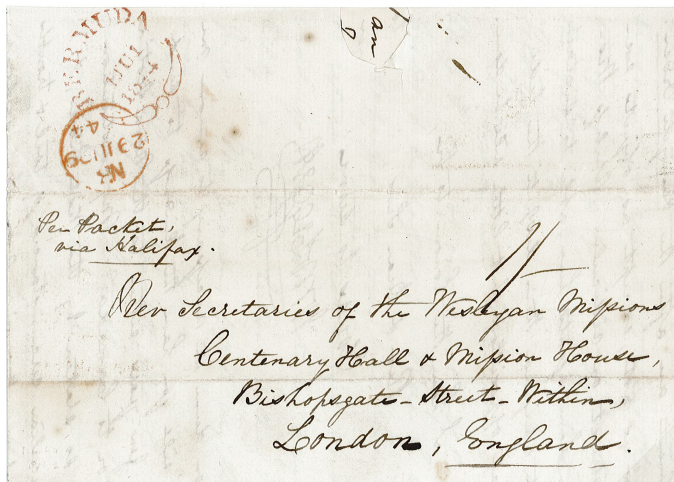 BERMUDA
1 JUL
1844
NR
23 JU 09
44
an
Per Packet,
via Halifax.
1/-
Rev Secretaries of the Wesleyan Missions
Centenary Hall & Mission House,
Bishopsgate-Street-Within,
London, England.